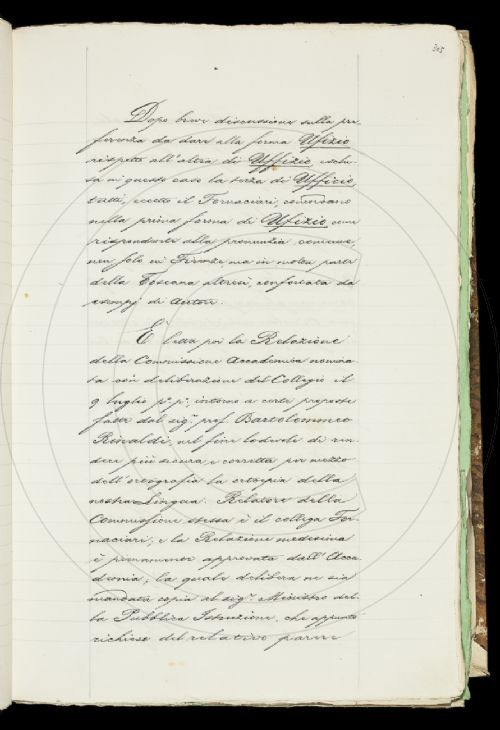 305
Dopo breve discussione sulla pre-
ferenza da dare alla forma Ufizio
rispetto all'altra di Uffizio, esclu-
sa in questo caso la terza di Ufficio,
tutti, eccetto il Fornaciari, concordano
nella prima forma di Ufizio, come
rispondente alla pronunzia comune,
non solo in Firenze, ma in molta parte
della Toscana altresì, confortata da
esempj di Autori.
È letta poi la Relazione
della Commissione Accademica nomina-
ta con deliberazione del Collegio il
9 luglio p.º p.º, intorno a certe proposte
fatte dal sig.r prof. Bartolommeo
Rinaldi, nel fine lodevole di ren-
dere più sicura, e corretta per mezzo
dell'ortografia la ortoepia della
nostra Lingua. Relatore della
Commissione stessa è il collega For-
naciari; e la Relazione medesima
è pienamente approvata dall'Acca-
demia; la quale delibera ne sia
mandata copia al sig.r Ministro del-
la Pubblica Istruzione, che appunto
richiese del relativo parere